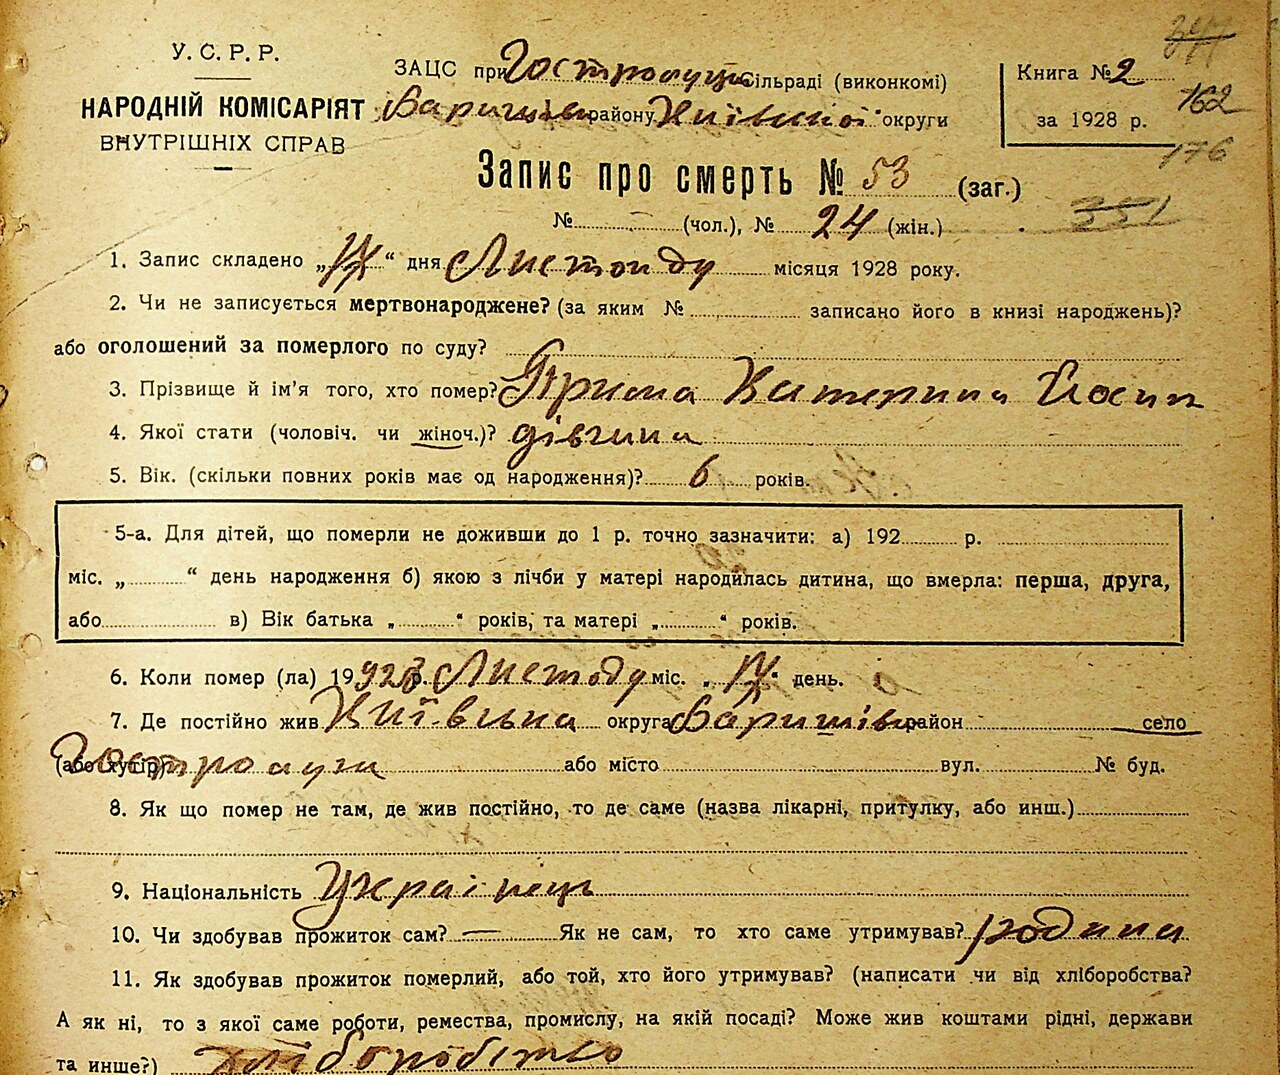 У. С. Р. Р.
НАРОДНІЙ КОМІСАРІЯТ
ВНУТРІШНІХ СПРАВ
ЗАЦС при Гостролуцькій сільраді (виконкомі)
Баришівськ району Київської округи
Книга № 2
за 1928 р.
347
162
176
351
Запис про смерть № 53 (заг.)
№ - (чол.), № 24 (жін.)
1. Запис складено „17“ дня Листопаду місяця 1928 року.
2. Чи не записується мертвонароджене? (за яким № записано його в книзі народжень)?
або оголошений за померлого по суду?
3. Прізвище й ім'я того, хто помер? Катерина Йосип
4. Якої стати (чоловіч. чи жіноч.)? дівчина
5. Вік. (скільки повних років має од народження)? 6 років.
5-а. Для дітей, що померли не доживши до 1 р. точно зазначити: а) 192 р.
міс. „ “ день народження б) якою з лічби у матері народилась дитина, що вмерла: перша, друга,
або в) Вік батька „ “ років, та матері „ “ років.
6. Коли помер (ла) 19 928 р. Листоду міс. „17“ день.
7. Де постійно жив Київська округа Баришів район село
(або хутір) Гостролуги або місто вул. № буд.
8. Як що помер не там, де жив постійно, то де саме (назва лікарні, притулку, або инш.)
9. Національність Українець
10. Чи здобував прожиток сам? — Як не сам, то хто саме утримував? родина
11. Як здобував прожиток померлий, або той, хто його утримував? (написати чи від хліборобства?
А як ні, то з якої саме роботи, ремества, промислу, на якій посаді? Може жив коштами рідні, держави
та инше?) хліборобство